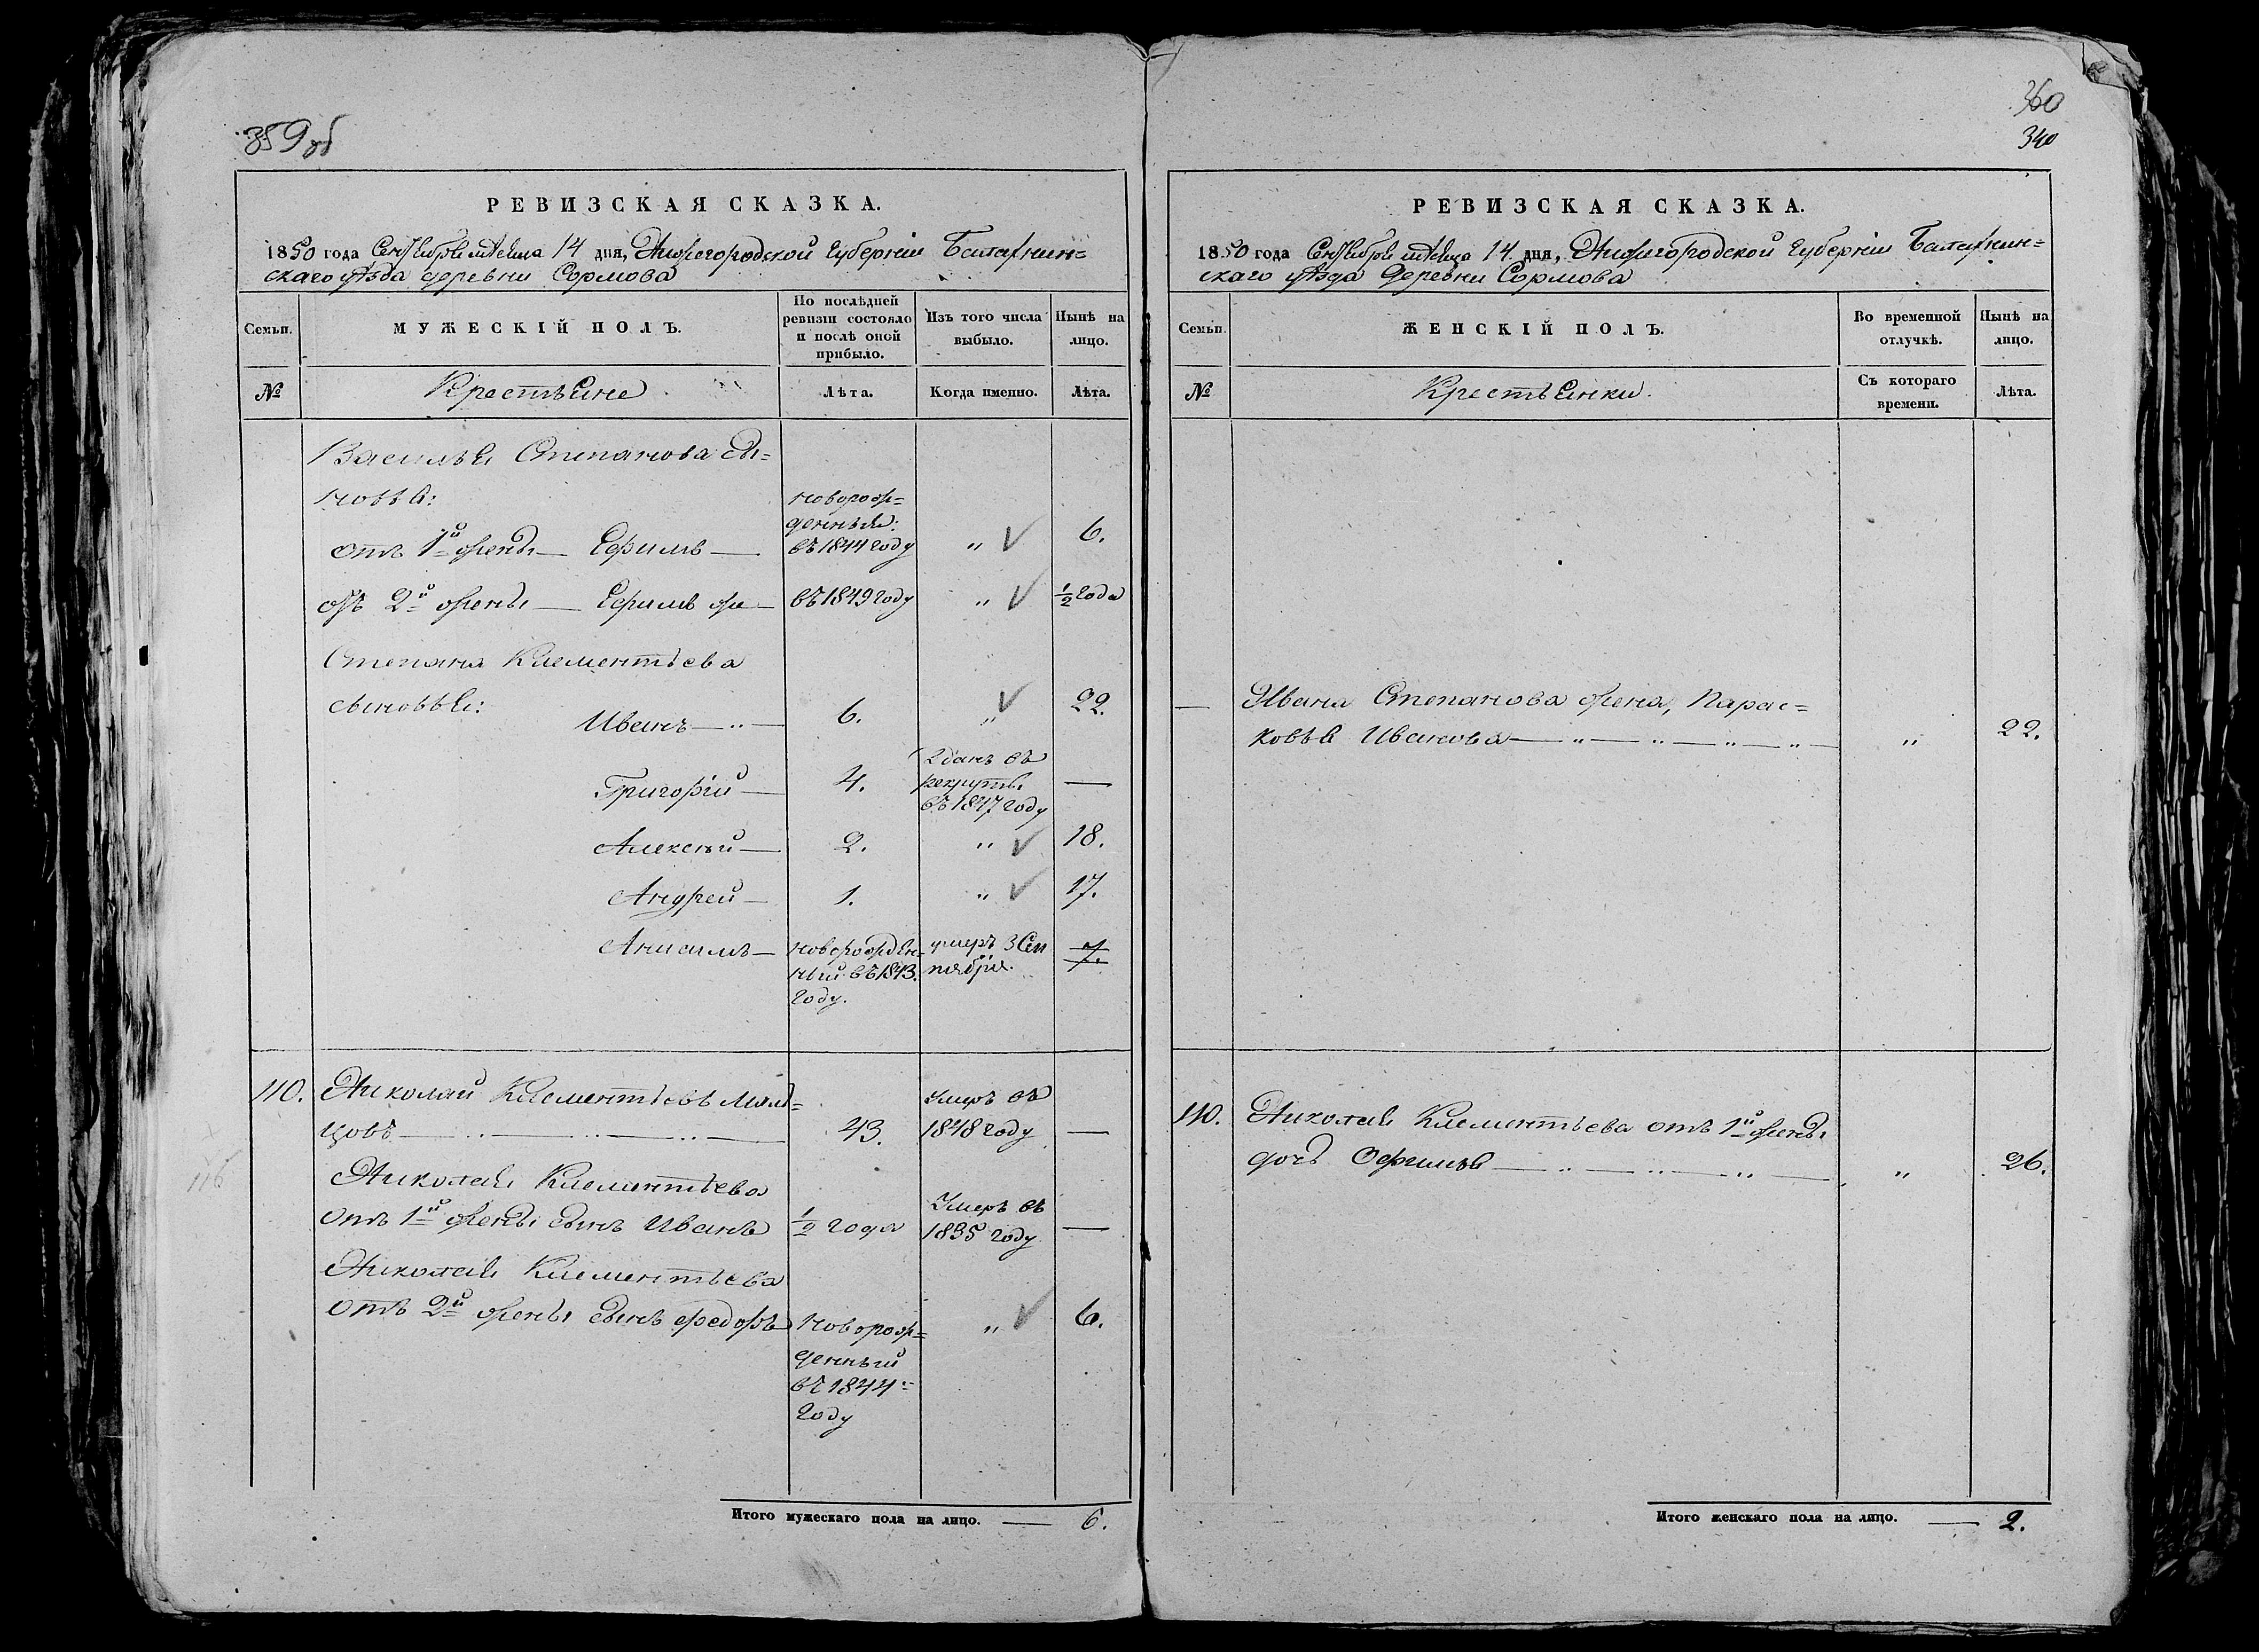 359 об
РЕВИЗСКАЯ СКАЗКА.
1850 года Сентября мѣсяца 14 дня, Нижегородской Губерніи Балахнин=
скаго уѣзда деревни Сормова
Семьи.
МУЖЕСКІЙ ПОЛЪ.
По послѣдней
ревизіи состояло
и послѣ оной
прибыло.
Изъ того числа
выбыло.
Нынѣ на
лицо.
№
Крестьяне
Лѣта.
Когда именно.
Лѣта.
Василья Степанова сы=
новья:
отъ 1й жены — Ефимъ —
новорож=
денные:
въ 1844 году
„
6.
отъ 2й жены — Ефимъ же —
въ 1849 году
„
½ года
Степана Клементьева
сыновья:
Иванъ — „ —
6.
„
22.
Григорій —
4.
Зданъ въ
рекруты
въ 1847 году
—
Алексей —
2.
„
18.
Андрей —
1.
„
17.
Анисимъ —
новорожден=
ный въ 1843.
году.
умеръ 3 Сен
тября.
7.
110.
Николай Клементьевъ Мял=
цовъ — „ — „ — „ —
43.
Умеръ въ
1848 году
—
116
Николая Клементьева
отъ 1й жены сынъ Иванъ
½ года
Умеръ въ
1835 году
—
Николая Клементьева
отъ 2й жены сынъ Федоръ
новорож=
денный
въ 1844=
году
„
6.
Итого мужескаго пола на лицо. — 6.
360
340
РЕВИЗСКАЯ СКАЗКА.
1850 года Сентября мѣсяца 14 дня, Нижегородской Губерніи Балахнин=
скаго уѣзда деревни Сормова
Семьи.
ЖЕНСКІЙ ПОЛЪ.
Во временной
отлучкѣ.
Нынѣ на
лицо.
№
Крестьянки.
Съ котораго
времени.
Лѣта.
— Ивана Степанова жена, Парас=
ковья Иванова — „ — „ — „ — „ —
„
22.
110.
Николая Клементьева отъ 1й жены
дочь Офимья — „ — „ — „ —
„
26.
Итого женскаго пола на лицо. — 2.